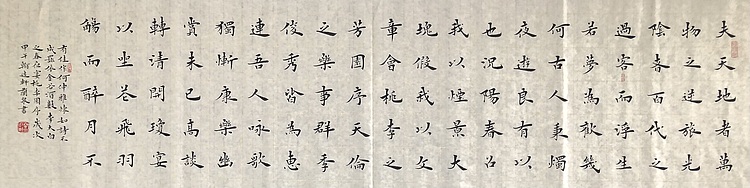 夫天地者萬
物之逆旅光
陰者百代之
過客而浮生
若夢為歡幾
何古人秉燭
夜遊良有以
也況陽春召
我以煙景大
塊假我以文
章會桃李之
芳園序天倫
之樂事群季
俊秀皆為惠
連吾人詠歌
獨慚康樂幽
賞未已高談
轉清開瓊宴
以坐花飛羽
觴而醉月不
有佳作何伸雅懷如詩不
成罰依金谷酒數李太白
之春夜宴桃李園序歲次
甲午